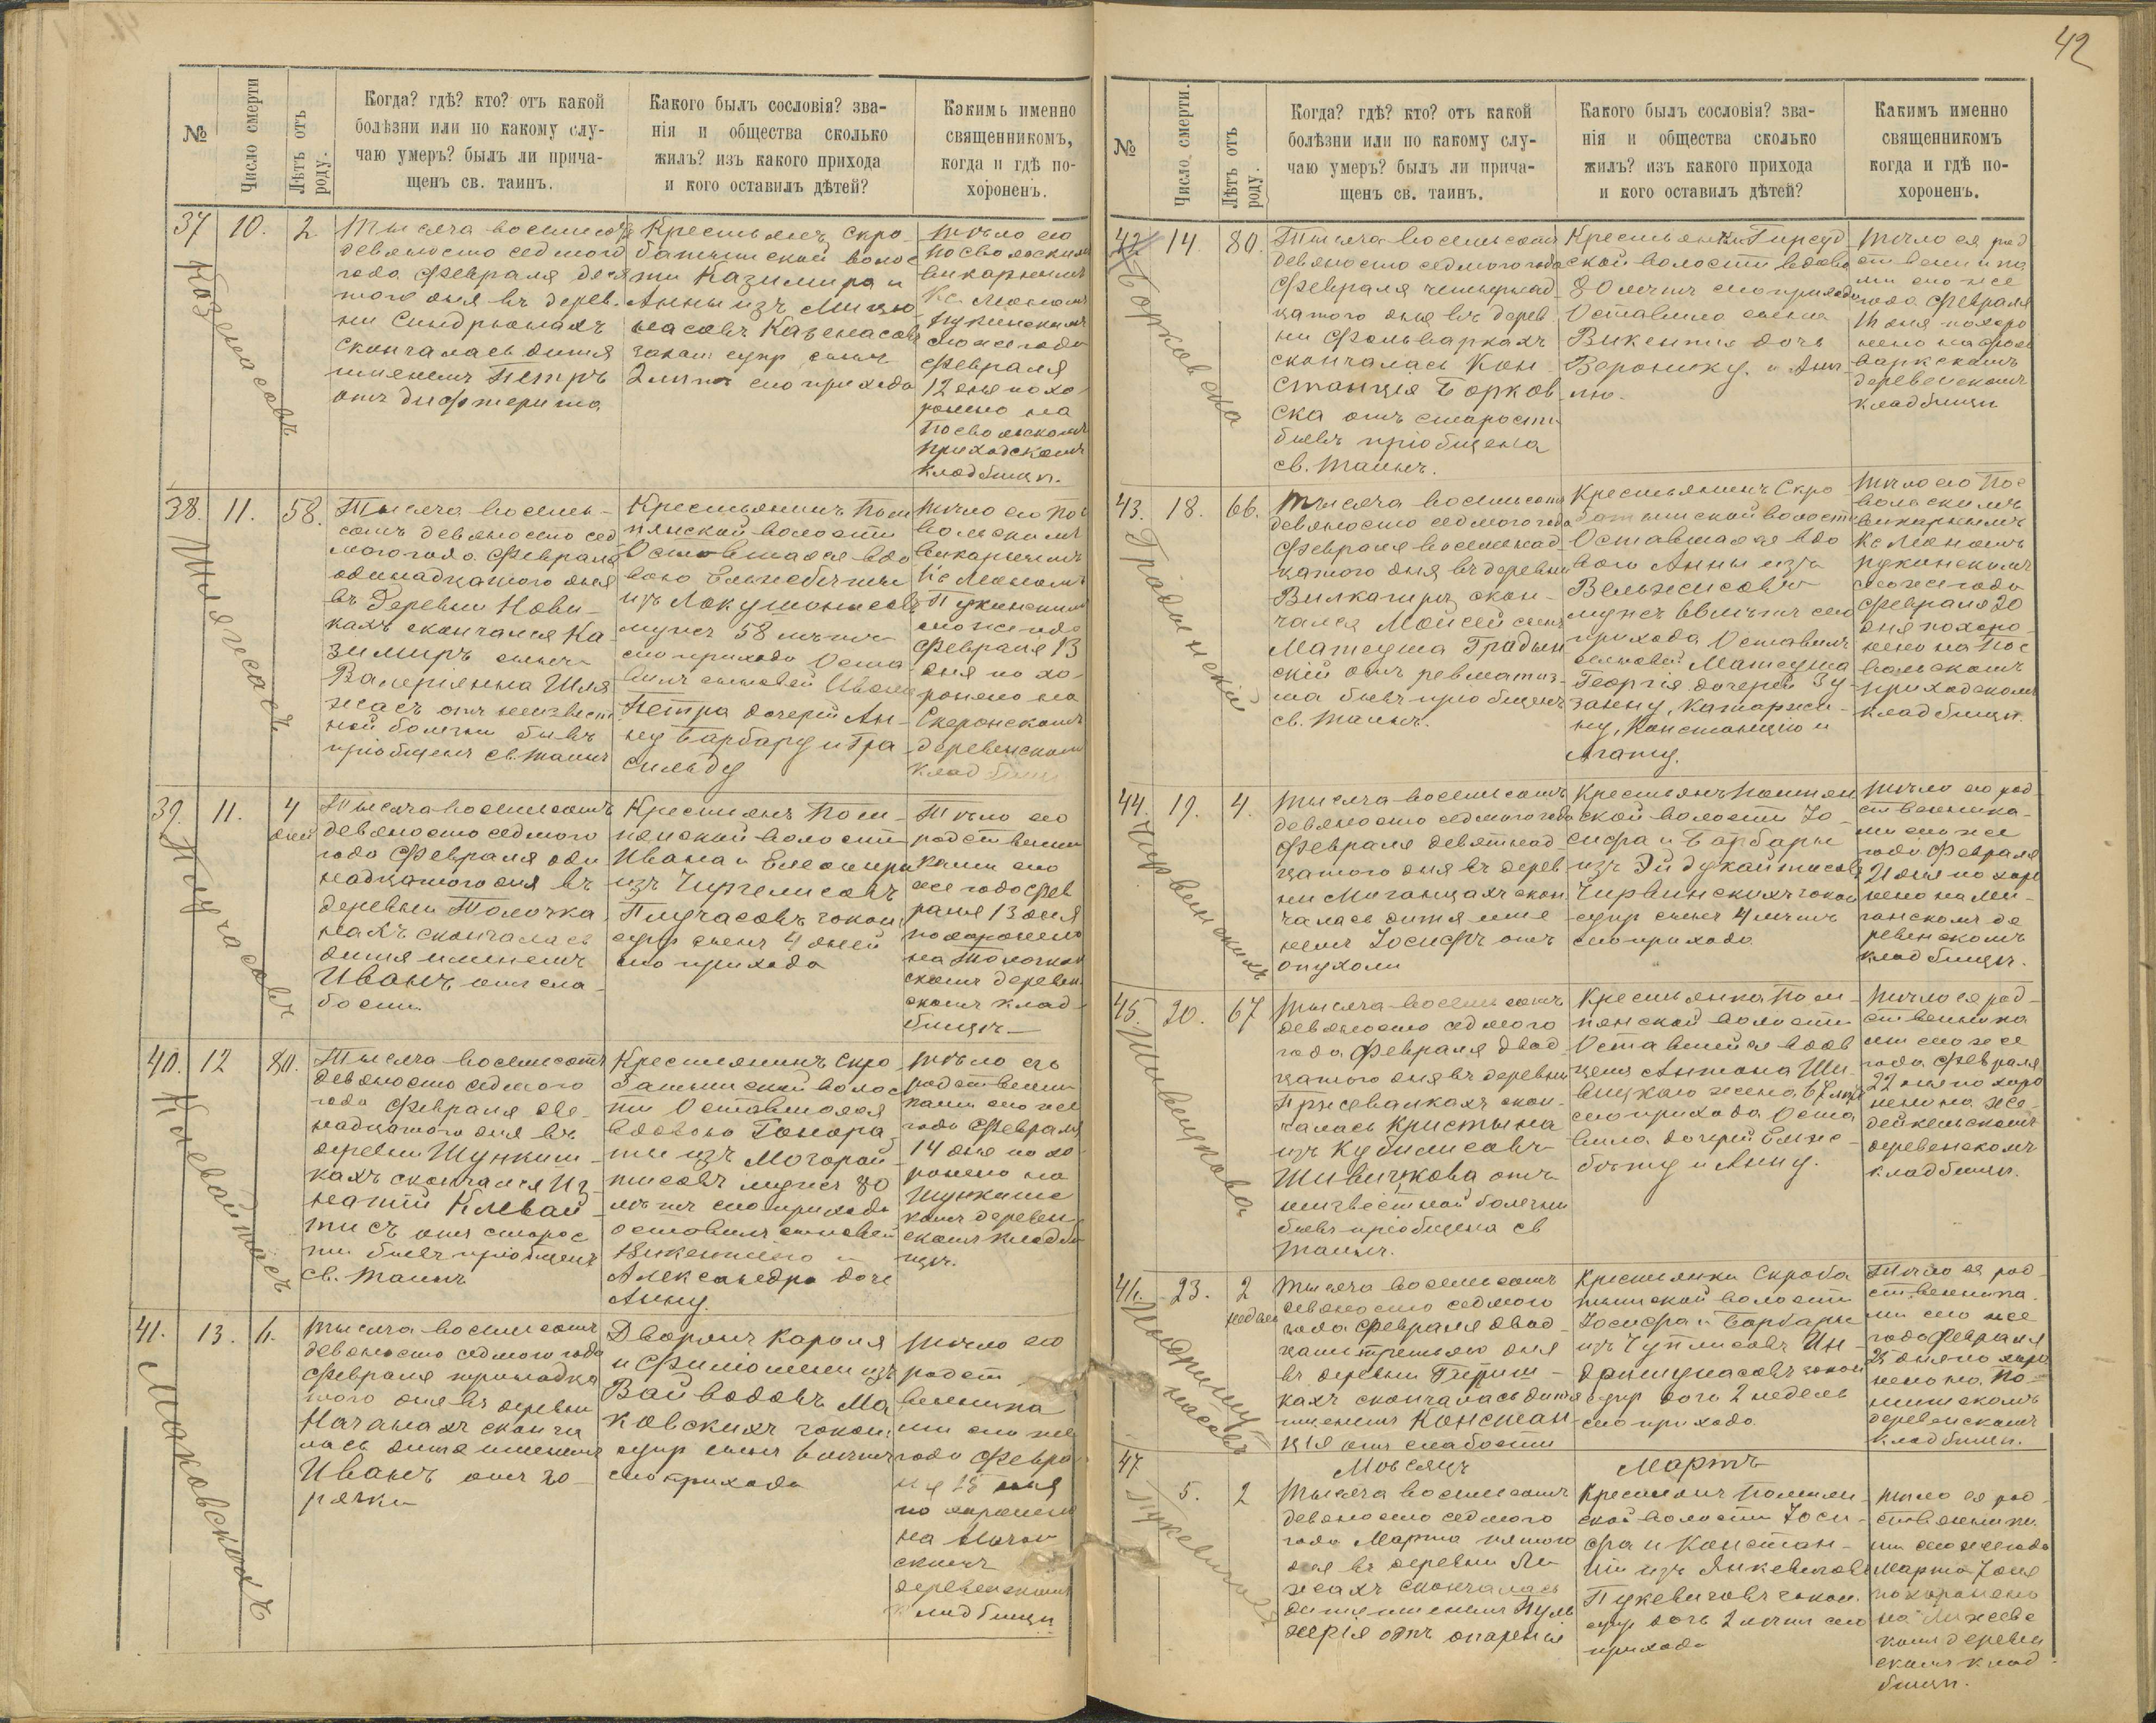 42
№
Число смерти
Лѣтъ отъ роду.
Когда? гдѣ? кто? отъ какой
болѣзни или по какому слу-
чаю умеръ? былъ ли прича-
щенъ св. таинъ.
Какого былъ сословія? зва-
нія и общества сколько
жилъ? изъ какого прихода
и кого оставилъ дѣтей?
Какимъ именно
священникомъ,
когда и гдѣ по-
хороненъ.
37
10.
2
Тысяча восемьсотъ
девяносто седмого
года Февраля деся
таго дня въ дерев-
ни Синдрюнахъ
скончалась дитя
именемъ Петръ
отъ дифтерита
Крестьянъ Скро-
батышской волос
ти Казимира и
Анны изъ
закон супр сынъ
2 лѣтъ сего прихода
Тѣло его
Посвольскимъ
викарнымъ
сего же года
Февраля
12 дня похо
ронено на
Посвольскомъ
приходскомъ
кладбищѣ.
38.
11.
58.
Тысяча восемь-
сотъ девяносто сед
мого года Февраля
одинадцатого дня
въ деревни Нови-
кахъ скончался Ка
зимиръ сынъ
Валеріянна Шля
жасъ отъ неизвѣст
ной болѣзни бывъ
пріобщенъ св. таинъ
Крестьянинъ Пом
пянской волости
Оставшаяся вдо
вою Ельжебѣты
мужъ 58 лѣтъ
сего прихода Оста
вилъ сыновей Ивана
Петра дочерей Ан-
ну Барбару и Гра
сильду
Тѣло его Пос
вольскимъ
викарнымъ
сего же года
Февраля 13
дня по хо-
ронено на
деревенскомъ
кладбищѣ
39.
11.
4
дней
Тысяча восемьсотъ
девяносто седмого
года Февраля оди
надцатого дня въ
деревни Толочка
нахъ скончалась
дитя именемъ
Иванъ отъ сла-
бости
Крестьянъ Пом-
пянской волости
Ивана и Елеоноры
закон
супр сынъ 4 дней
сего прихода
Тѣло его
родственни
ками сего
же года Фев
раля 13 дня
похоронено
деревен
скомъ клад-
бищѣ
40.
12
80.
Тысяча восемьсотъ
девяносто седмого
года Февраля две-
надцатого дня въ
деревни Шункиш-
кахъ скончался Иг
натій Клевай-
тисъ отъ старос
ти бывъ пріобщенъ
св. таинъ
Крестьянинъ Скро-
батышской волос
ти Оставшаяся
вдовою Гонора
ты изъ
мужъ 80
лѣтъ сего прихода
оставилъ сыновей
Викентіего и
Александра дочь
Анну.
Тѣло его
родственни
ками сего же
года Февраля
14 дня по хо-
ронено на
Шункиш
комъ деревен
скомъ кладби
щѣ.
41.
13.
6.
Тысяча восемьсотъ
девяносто седмого года
Февраля тринадца
того дня въ деревни
Начанахъ сконча
лась дитя именемъ
Иванъ отъ го-
рячки
Дворянъ Кароля
и Филомены изъ
Вайводовъ Ма
ковскихъ закон.
супр сынъ 6 лѣтъ
сего прихода
Тѣло его
родст
венника
ми сего же
года Февра
ля 15 дня
по хоронено
деревенскомъ
кладбищѣ
Маковскихъ
№
Число смерти.
Лѣтъ отъ роду.
Когда? гдѣ? кто? отъ какой
болѣзни или по какому слу-
чаю умеръ? былъ ли прича-
щенъ св. таинъ.
Какого былъ сословія? зва-
нія и общества сколько
жилъ? изъ какого прихода
и кого оставилъ дѣтей?
Какимъ именно
священникомъ
когда и гдѣ по-
хороненъ.
42.
14.
80.
Борковска
Тысяча восемьсотъ
девяносто седмого года
Февраля четырнад
цатого дня въ дерев
ни Фольваркахъ
скончалась Кон-
станція Борков-
ска отъ старости
бывъ пріобщена
св. таинъ.
Крестьянки Гирсуд
ской волости вдова
80 лѣтъ сего прихода
Оставила сына
Викентія дочь
Веронику и Ант-
лю.
Тѣло ея род
ственника
ми сего же
года Февраля
16 дня похоро
нено на Фоль
варкскомъ
деревенскомъ
кладбищѣ
43.
18.
66.
Градынскій
Тысяча восемьсотъ
девяносто седмого года
Февраля восемнад-
цатого дня въ деревни
скон-
чался Мойсей сынъ
Матеуша Градын
скій отъ ревматиз-
ма бывъ пріобщенъ
св. таинъ.
Крестьянинъ Скро
батышской волости
Оставшаяся вдо
вою Анны изъ
мужъ 66 лѣтъ сего
прихода Оставилъ
сыновей Матеуша
Георгія дочерей Зу-
занну, Катаржи-
ну, Констанцію и
Агату.
Тѣло его Пос
вольскимъ
викарнымъ
сего же года
Февраля 20
дня похоро
нено на Пос
вольскомъ
приходскомъ
кладбищѣ.
44.
19.
4.
Тысяча восемьсотъ
девяносто седмого года
Февраля девятнад
цатого дня въ дерев
ни Миганцахъ скон
чалась дитя име
немъ Іосифъ отъ
опухоли
Крестьянъ Помпян
ской волости Іо-
сифа и Барбары
изъ Эйдукайтисовъ
Чирвинскихъ закон
супр сынъ 4 лѣтъ
сего прихода
Тѣло его род
ственника-
ми сего же
года Февраля
21 дня по хоро
нено на Ми
ганскомъ де
ревенскомъ
кладбищѣ.
45.
20.
67
Тысяча восемьсотъ
девяносто седмого
года Февраля двад
цатого дня въ деревни
скон-
чалась Кристына
изъ Кубилисовъ
Шивицкова отъ
неизвѣстной болѣзни
бывъ пріобщена св
таинъ.
Крестьянка Пом-
пянской волости
Оставшійся вдов
цемъ Антона Ши-
вицкаго жена 67 лѣтъ
сего прихода Оста
вила дочерей Ельже-
бѣту и Анну.
Тѣло ея род-
ственника
ми сего же
года Февраля
22 дня по хоро
нено на
деревенскомъ
кладбищѣ.
46.
23.
2
недѣль
Тысяча восемьсотъ
девяносто седмого
года Февраля двад-
цать третьяго дня
въ деревни
кахъ скончалась дитя
именемъ Констан-
ція отъ слабости
Крестьянки Скроба
тышской волости
Іосифа и Барбары
изъ
закон
супр дочь 2 недѣль
сего прихода
Тѣло ея род-
ственника
ми сего же
года Февраля
25 дня по хоро
нено на
деревенскомъ
кладбищѣ.
Мѣсяцъ Мартъ
47
5.
2
Тысяча восемьсотъ
девяносто седмого
года Марта пятого
дня въ деревни Ли-
жахъ скончалась
дитя именемъ Пуль
херія отъ опаренія
Крестьянъ Помпян-
ской волости Іоси-
фа и Констан-
ціи изъ Янкевичовъ
Пукевичовъ закон.
супр дочь 2 лѣтъ сего
прихода
Тѣло ея род-
ственника
ми сего же года
Марта 7 дня
похоронено
деревен
скомъ клад
бищѣ.